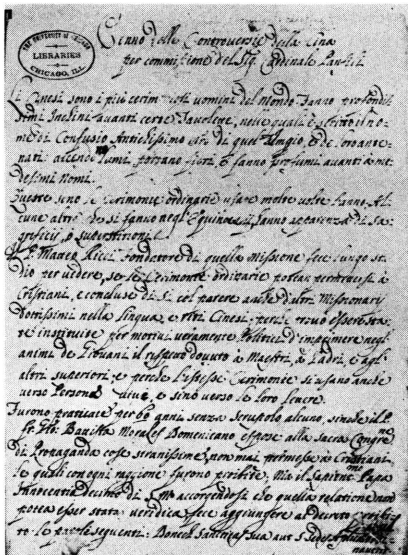 THE UNIVERSITY OF CHICAGO
LIBRARIES
CHICAGO, ILL.
Cenno delle Controversie della Cina
per commissione del Sig. Cardinale
Cinesi sono i più uomini del Mondo fanno profondis
simi Inchini avanti certe Tavolette, nelle quali è scritto il no-
me di Confusio Antichissimo di quel e de loro ante-
nati accendo lumi, portano fiori, e fanno profumi avanti a me-
desimi nomi.
Queste sono le Cerimonie ordinarie usate molte volte l'anno. Al-
cune altre che si fanno negl'Equinozii, hanno apparenza di Sa-
grificij, o superstitioni.
Il P. Matteo Ricci Fondatore di quella Missione fece lungo stu-
dio per vedere, se le Cerimonie ordinarie potean permettersi à
Cristiani, e concluse di Sì col parere anche d'altri Missionarij
Dottissimi nella lingua, e riti Cinesi, perche trovò essere sta-
te instituite per motivi veramente Politici d'imprimere negl'
animi de Giovani il rispetto dovuto à Maestri, à Padri, e agl'
altri superiori, e perche l'istesse Cerimonie si usano anche
verso Persone vive, e sino verso le loro lettere.
Furono praticate per 60 anni senza scrupolo alcuno, sinche il P.
Fr. Gio. Battista Morales Domenicano espose alla Sacra Congne
di Propaganda cose stranissime, non mai permesse à Cristiani,
le quali con ogni raggione furono proibite. Ma il Sapientmo Papa
Innocentio decimo di S.M. accorgendosi che quella relatione non
potea esser stata veridica fece aggiungere al decreto
to le parole seguenti: Donec Sanctitas Sua aut S. Sedes Apostolica